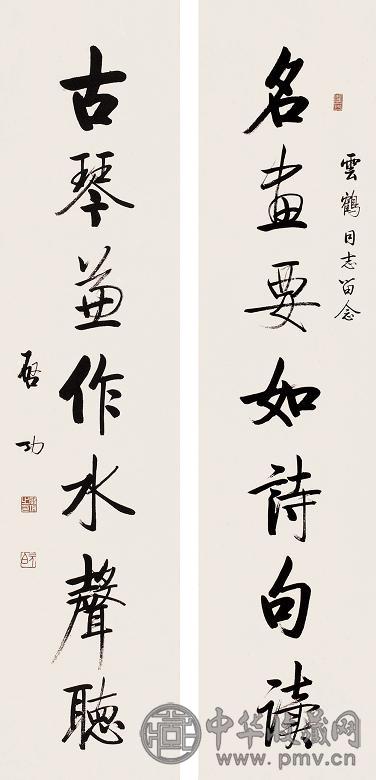 雲鶴同志留念
名畫要如詩句读
古琴兼作水聲聽
啟功
中华收藏网
www.pmv.cn